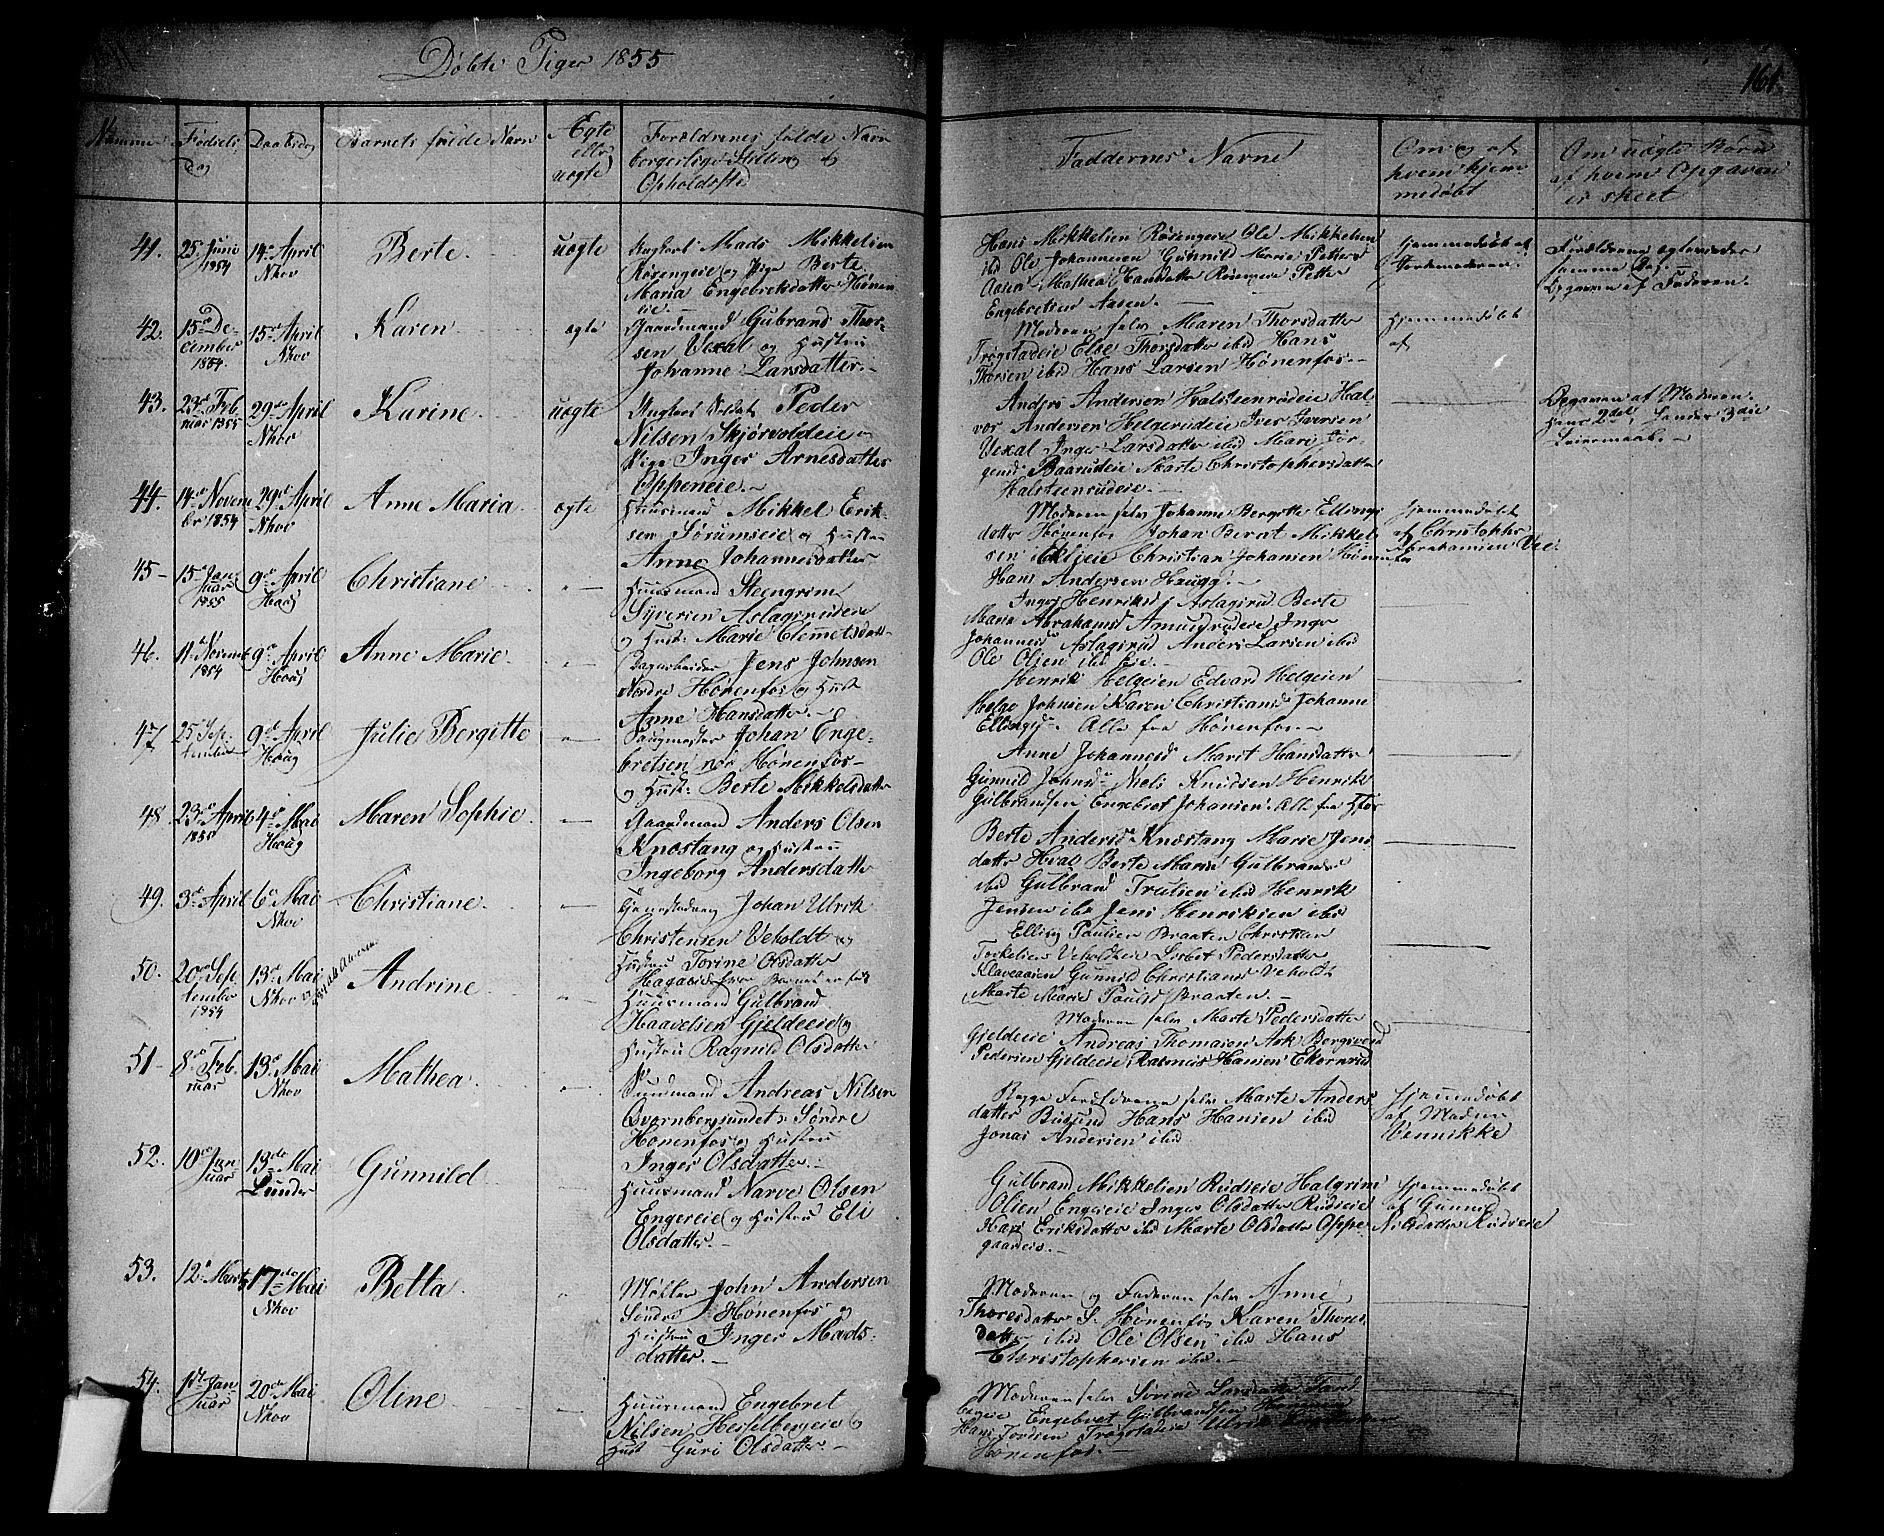 Døbte Piger 1855
161.
Numer
Fødsels Dag
Daabsdag
Barnets fulde Navn
Ægte eller uægte
Forældrenes fulde Navn
borgerlige Stilling og
Opholdsste
Faddernes Navne
Om og af
hvem hjem-
medøbt
Om uægte Børn
af hvem Opgaven
er skeet
41.
25 Juni 1854
14 April Nhov
Berte.
uægte
Ungkarl Mads Mikkelsen
Rosengeie og Pige Berte
Maria Engebretsdatter Hønen-
eie.
Hans Mikkelsen Rosengeie Ole Mikkelsen
ibid Ole Johannesen Gunnil Marie Petters
Aasen Mathea Hansdatter Rosengeie Petter
Engebretsen Aasen.
Hjemmedøbt af
Jordemoderen.
Forældrene egteviedes
samme Dag.
Opgaven af Faderen.
42.
15 De-
cember
1854.
15 April
Nhov
Karen
ægte
Gaardmand Gulbrand Thor-
sen Vexal og Hustru
Johanne Larsdatter.
Moderen selv Maren Thorsdatter
Trøgstadeie Else Thorsdatter ibid Hans
Thorsen ibid Hans Larsen Hønenfos.
Hjemmedøbt
af
43.
23 Feb
ruar 1855
29 April
Nhov
Karine
uægte
Ungkarl Soldat Peder
Nilsen Skjørvoldeie og
Pige Inger Arnesdatter
Oppeneie.
Anders Andersen Halsteenrudeie Hal
vor Andersen Helgerudeie Iver Iversen
Vexal Inger Larsdatter ibid Mari Jør-
gensd Baarudeie Marte Christophersdatter
Halsteenrudeie.
Opgaven af Moderen.
Hans 2det, hendes 3die
Leiermaal.
44.
14 Novem
br 1854
29 April
Nhov
Anne Maria
ægte
Huusmand Mikkel Erik-
sen Sørumseie og Hustru
Anne Johannesdatter
Moderen selv Johanne Bergitte Ellings
datter Hønenfos Johan Berat Mikkel
sen Christian Johansen Hønenfos
Hans Andersen Haugg.
Hjemmedøbt
af Christopher
Abrahamsen
45
15 Jan
uar
1855
9 April
Haug
Christiane
Huusmand Steengrim
Syversen Aslagsrudeie
og Hust: Marie Clemetsdatt
Inger Henriksd Aslagsrud Berte
Marie Abrahamsd Inger
Johannesd Aslagsrud Anders Larsen ibid
Ole Olsen ibid Eie.
46.
11 Novemb
1854
9 April
Haug
Anne Marie.
Dagarbeider Jens Johnsen
Nordre Hønenfos og Hust
Anne Hansdatter.
Henrik Helgesen Edvard Helgesen
Helge Johnsen Karen Christiansd Johanne
Ellingsd. Alle fra Hønenfos.
47
25 Sep-
tember
9 April
Haug
Julie Bergitte
Saugmester Johan Enge-
bretsen nor Hønenfos
og Hust: Berte Mikkelsdatter
Anne Johannesd Marit Hansdatter
Gunnild Johnsd Niels Knudsen Henrik
Gulbrandsen Engebret Johansen. Alle fra Hfos
48.
23 April
1855
4 Mai
Haug
Maren Sophie
Gaardmand Anders Olsen
Knæstang og Hustru
Ingeborg Andersdatter
Berte Andersd Knæstang Marie Jens
datter Hval Berte Marie Gulbrandsd
ibid Gulbrand Trulsen ibid Henrik
Jensen ibid Jens Henriksen ibid
49.
3 April
6 Mai
Nhov
Christiane
Tjenestedreng Johan Ulrik
Christensen Veholdt og
Hustru Torine Olsdatter
Hagaeie
Elling Paulsen Braaten Christian
Torkelsen Veholdteie Lisbet Pedersdatter
Klaveaaien Gunnild Christiansd Veholdt
Marte Marie Paulsd Braaten.
50.
20 Sep
tember
1854
13 Mai
Nhov
Andrine
Huusmand Gulbrand
Haavelsen Gjeldeeie og
Hustru Ragnild Olsdatter
Moderen selv Marte Pedersdatter
Gjeldeeie Andreas Thomasen Ask Bergsvend
Pedersen Gjeldeeie Rasmus Hansen Ekornrud
51
8 Feb
ruar
13 Mai
Nhov
Mathea
Sundmand Andreas Nilsen
Qvernbergsundet Søndre
Hønenfos og Hustru
Inger Olsdatter.
Begge Forældrene selv Marte Anders
datter Busund Hans Hansen ibid
Jonas Andersen ibid
Hjemmedøbt
af Maren
Vennikke
52.
10 Jan
uar
13de Mai
Lunder
Gunnild
Huusmand Narve Olsen
Engereie og Hustru Eli
Olsdatter.
Gulbrand Mikkelsen Rudseie Halgrim
Olsen Engereie Inger Olsdatter Rudseie
Kari Eriksdatter ibid Marte Olsdatter Oppe
gaardeie.
Hjemmedøbt
af Gunnil
Nilsdatter Rudseie
53.
12 Marts
17de Mai
Nhov
Betta
Møller John Andersen
Søndre Hønenfos og
Hustru Inger Mads-
datter.
Moderen og Faderen selv Anne
Thoresdatter S. Hønenfos Karen Thores
datter ibid Ole Olsen ibid Hans
Christophersen ibid.
54.
1 Jan
uar
20de Mai
Nhov
Oline
Huusmand Engebret
Nilsen Hesselbergeie og
Hust Guri Olsdatter
Moderen selv Sørine Larsdatter
Engebret Gulbrandsen
Hans Jordsen Trøgstadeie Ulrik
Hønenfos.